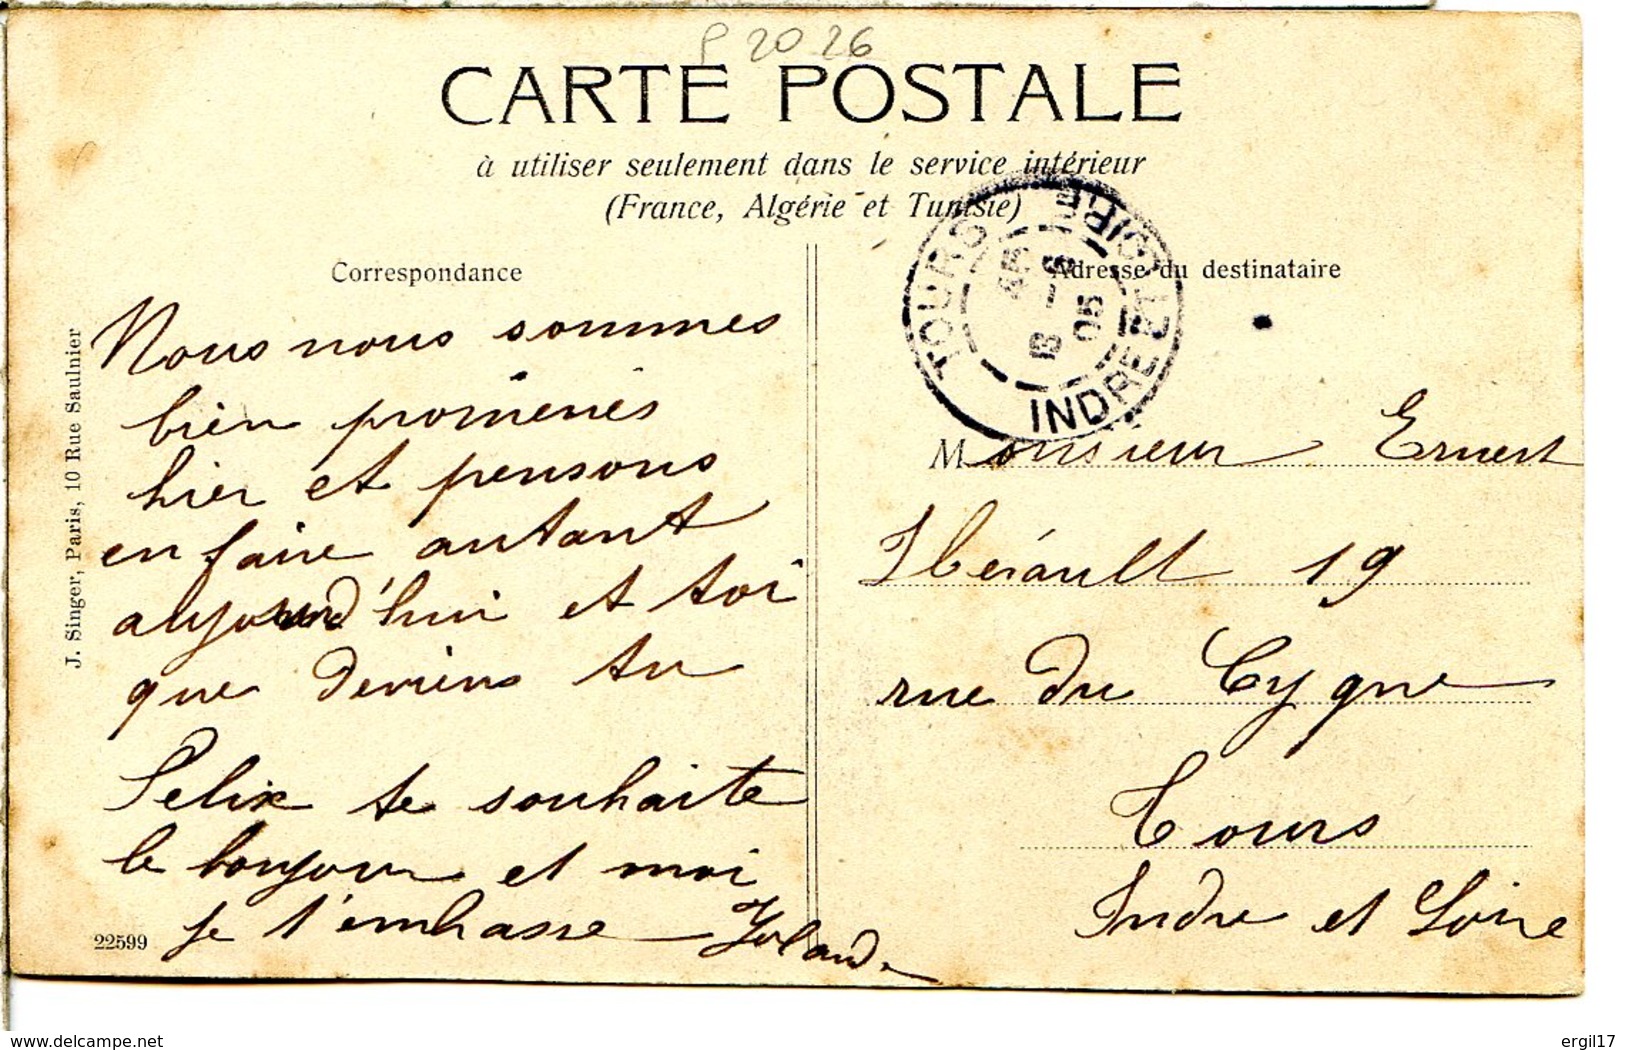 P 2026
CARTE POSTALE
à utiliser seulement dans le service intérieur
(France, Algérie et Tunisie)
Correspondance
Nous nous sommes
bien promenés
hier et pensons
en faire autant
aujourd'hui et toi
que deviens tu
Felix te souhaite
le bonjour et moi
je t'embrasse Yoland
J. Singer, Paris, 10 Rue Saulnier
22599
TOURS - GARE
INDRE ET LOIRE
05
Adresse du destinataire
Monsieur Ernest
Hérault 19
rue du Cygne
Tours
Indre et Loire
www.delcampe.net
ergil17